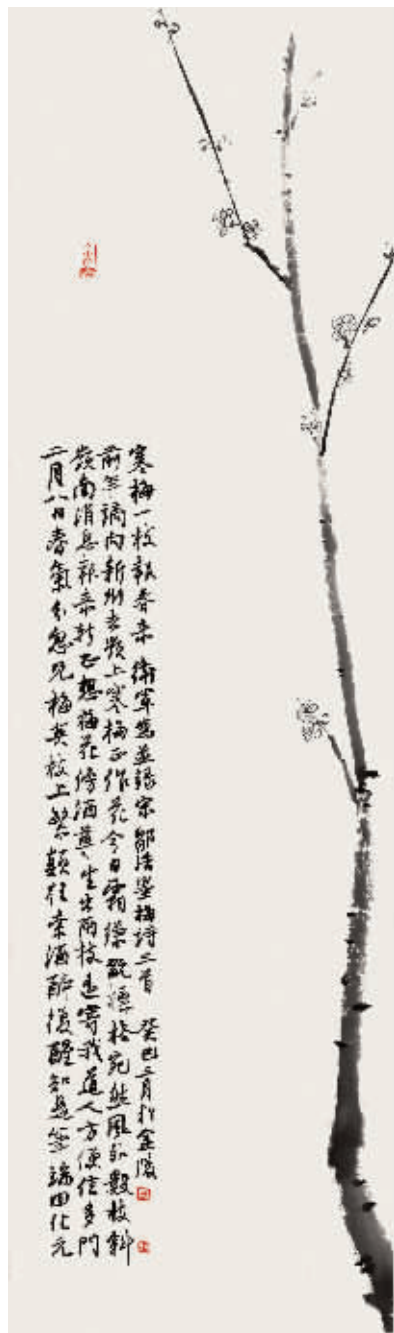 寒梅一枝報春來 衛軍寫並録宋鄒浩墨梅詩三首 癸巳三月於金陵
前年謫向新州去嶺上寒梅正作花今日霜縑玩標格宛然風外數枝斜
嶺南消息報來新正想梅花傍酒生出兩枝遠寄我道人方便信多門
二月八日春氣分忽見梅英枝上繁顛狂索酒醉復醒知是筆端回化元